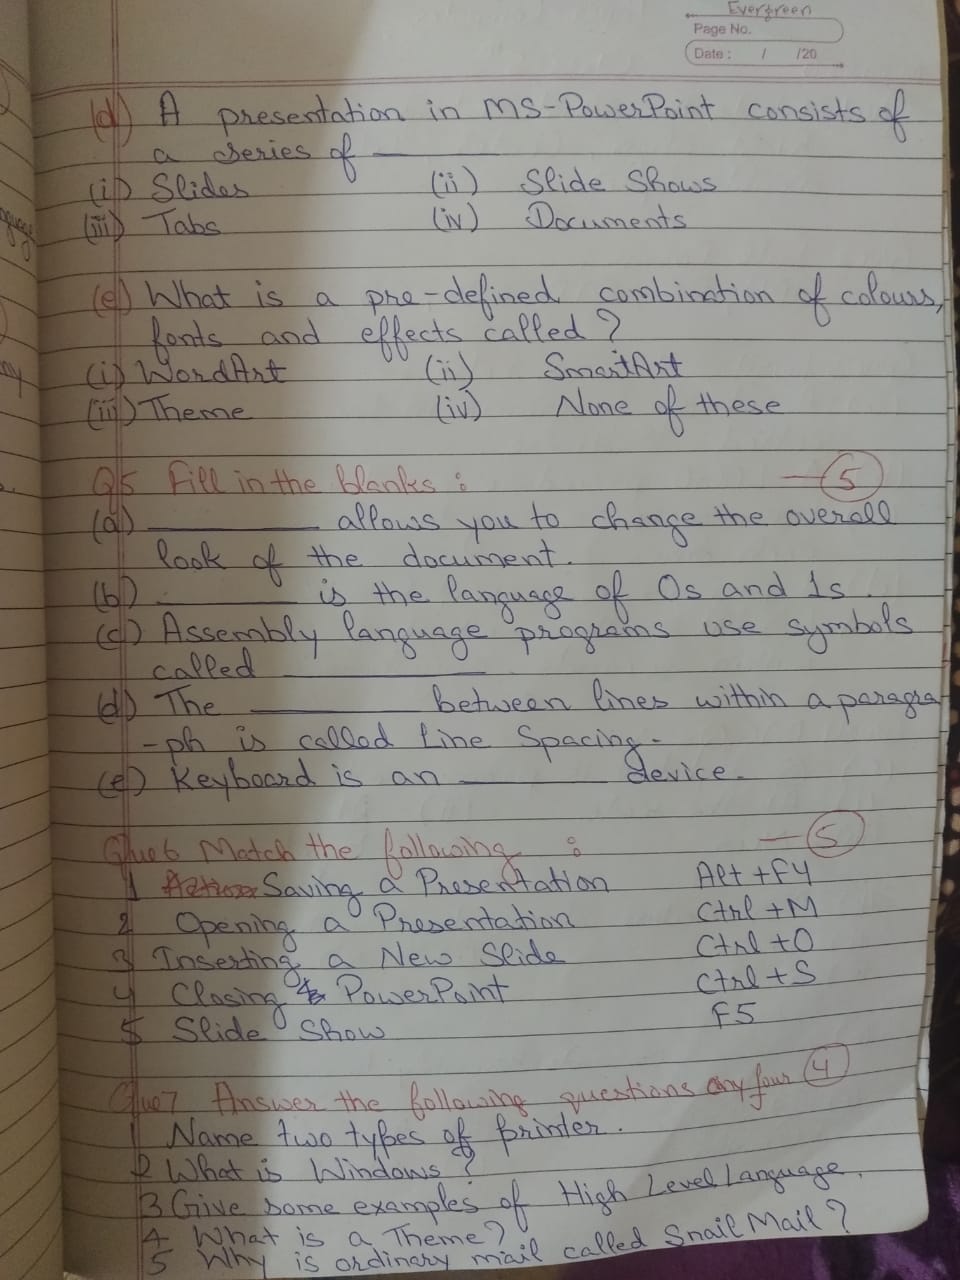 Evergreen
Page No.
Date : / /20
(d) A presentation in MS-PowerPoint consists of
a series of ________
(i) Slides (ii) Slide Shows
(iii) Tabs (iv) Documents
(e) What is a pre-defined combination of colours,
fonts and effects called ?
(i) WordArt (ii) SmartArt
(iii) Theme (iv) None of these
Q5 Fill in the blanks : — 5
(a) ________ allows you to change the overall
look of the document.
(b) ________ is the language of 0s and 1s.
(c) Assembly language programs use symbols
called ________
(d) The ________ between lines within a paragra
-ph is called Line Spacing.
(e) Keyboard is an ________ device.
Que6 Match the following : — 5
1 Saving a Presentation Alt + F4
2 Opening a Presentation Ctrl + M
3 Inserting a New Slide Ctrl + O
4 Closing PowerPoint Ctrl + S
5 Slide Show F5
Que7 Answer the following questions any four 4
1 Name two types of printer.
2 What is Windows ?
3 Give some examples of High Level Language.
4 What is a Theme ?
5 Why is ordinary mail called Snail Mail ?